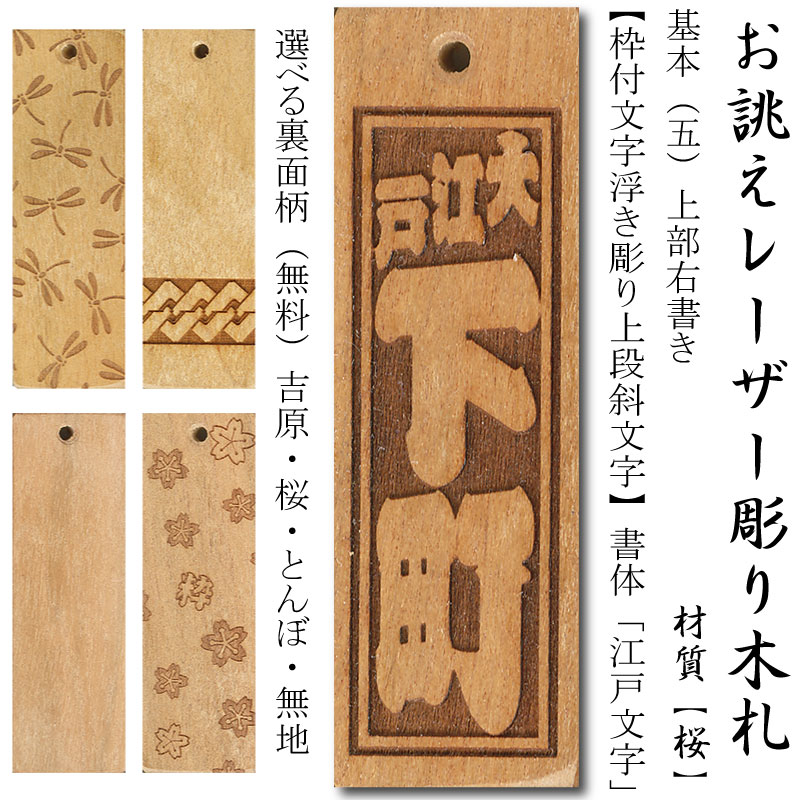 お誂えレーザー彫り木札
材質【桜】
基本（五）上部右書き
【枠付文字浮き彫り上段斜文字】書体「江戸文字」
大江戸
下町
選べる裏面柄（無料）吉原・桜・とんぼ・無地